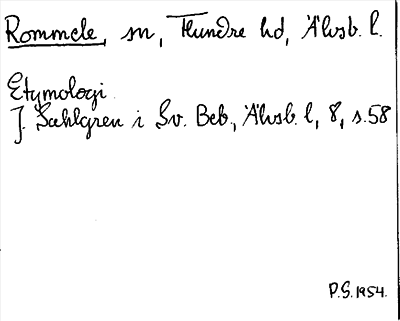 Rommele, sn, Flundre hd, Älvsb. l.
Etymologi
J. Sahlgren i Sv. Beb., Älvsb. l, 8, s. 58
P.S. 1954.